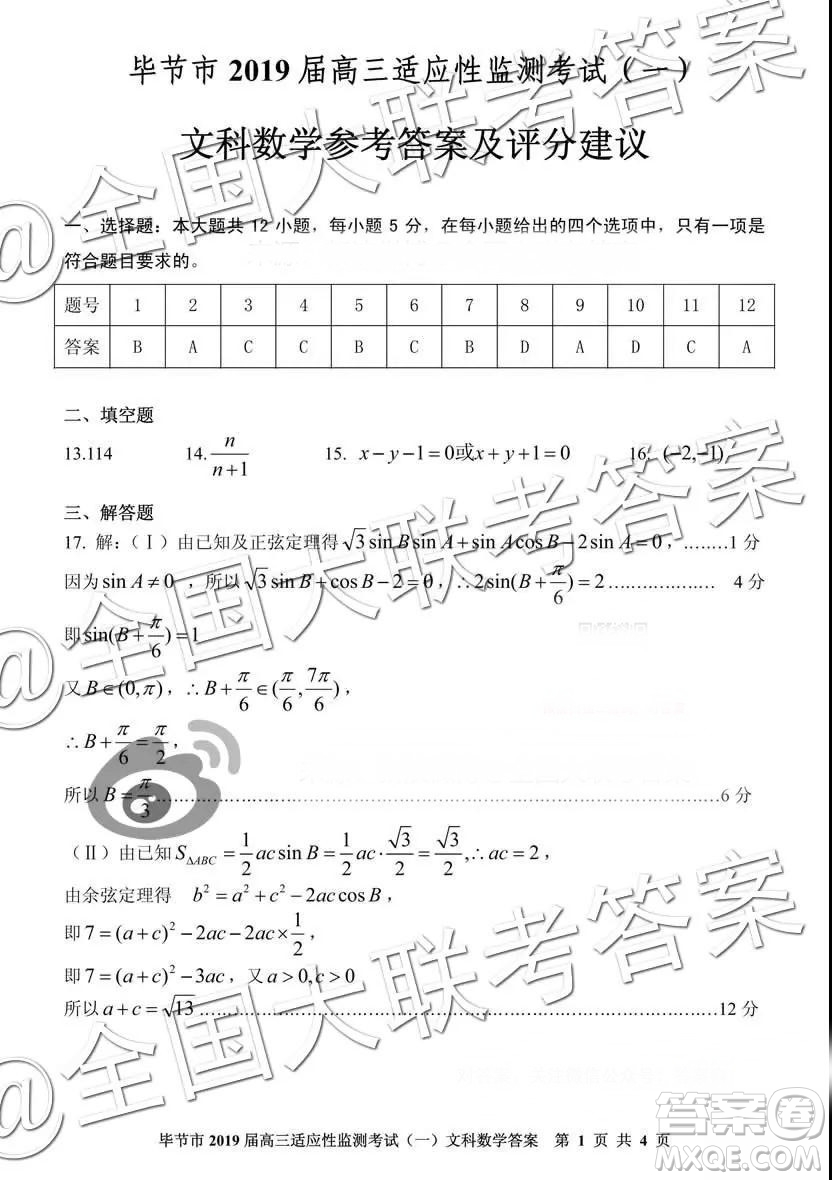 毕节市 2019 届高三适应性监测考试（一）
文科数学参考答案及评分建议
一、选择题：本大题共 12 小题，每小题 5 分，在每小题给出的四个选项中，只有一项是
符合题目要求的。
题号 1 2 3 4 5 6 7 8 9 10 11 12
答案 B A C C B C B D A D C A
二、填空题
13.114 14. n/(n+1) 15. x−y−1=0或x+y+1=0 16. (−2,−1)
三、解答题
17. 解：（Ⅰ）由已知及正弦定理得√3 sin B sin A+sin A cos B−2sin A=0，………1 分
因为sin A≠0 ，所以√3 sin B+cos B−2=0，∴2sin(B+π/6)=2………………… 4 分
即sin(B+π/6)=1
又B∈(0,π)，∴B+π/6∈(π/6,7π/6)，
∴B+π/6=π/2，
所以B=π/3………………………………………………………………………6 分
（Ⅱ）由已知 S△ABC=1/2 ac sin B=1/2 ac·√3/2=√3/2,∴ac=2，
由余弦定理得 b²=a²+c²−2ac cos B，
即7=(a+c)²−2ac−2ac×1/2，
即7=(a+c)²−3ac，又a>0,c>0
所以a+c=√13………………………………………………………………12 分
毕节市 2019 届高三适应性监测考试（一）文科数学答案 第 1 页 共 4 页
@全国大联考答案
@全国大联考答案
@全国大联考答案
答案卷
MXQE.COM